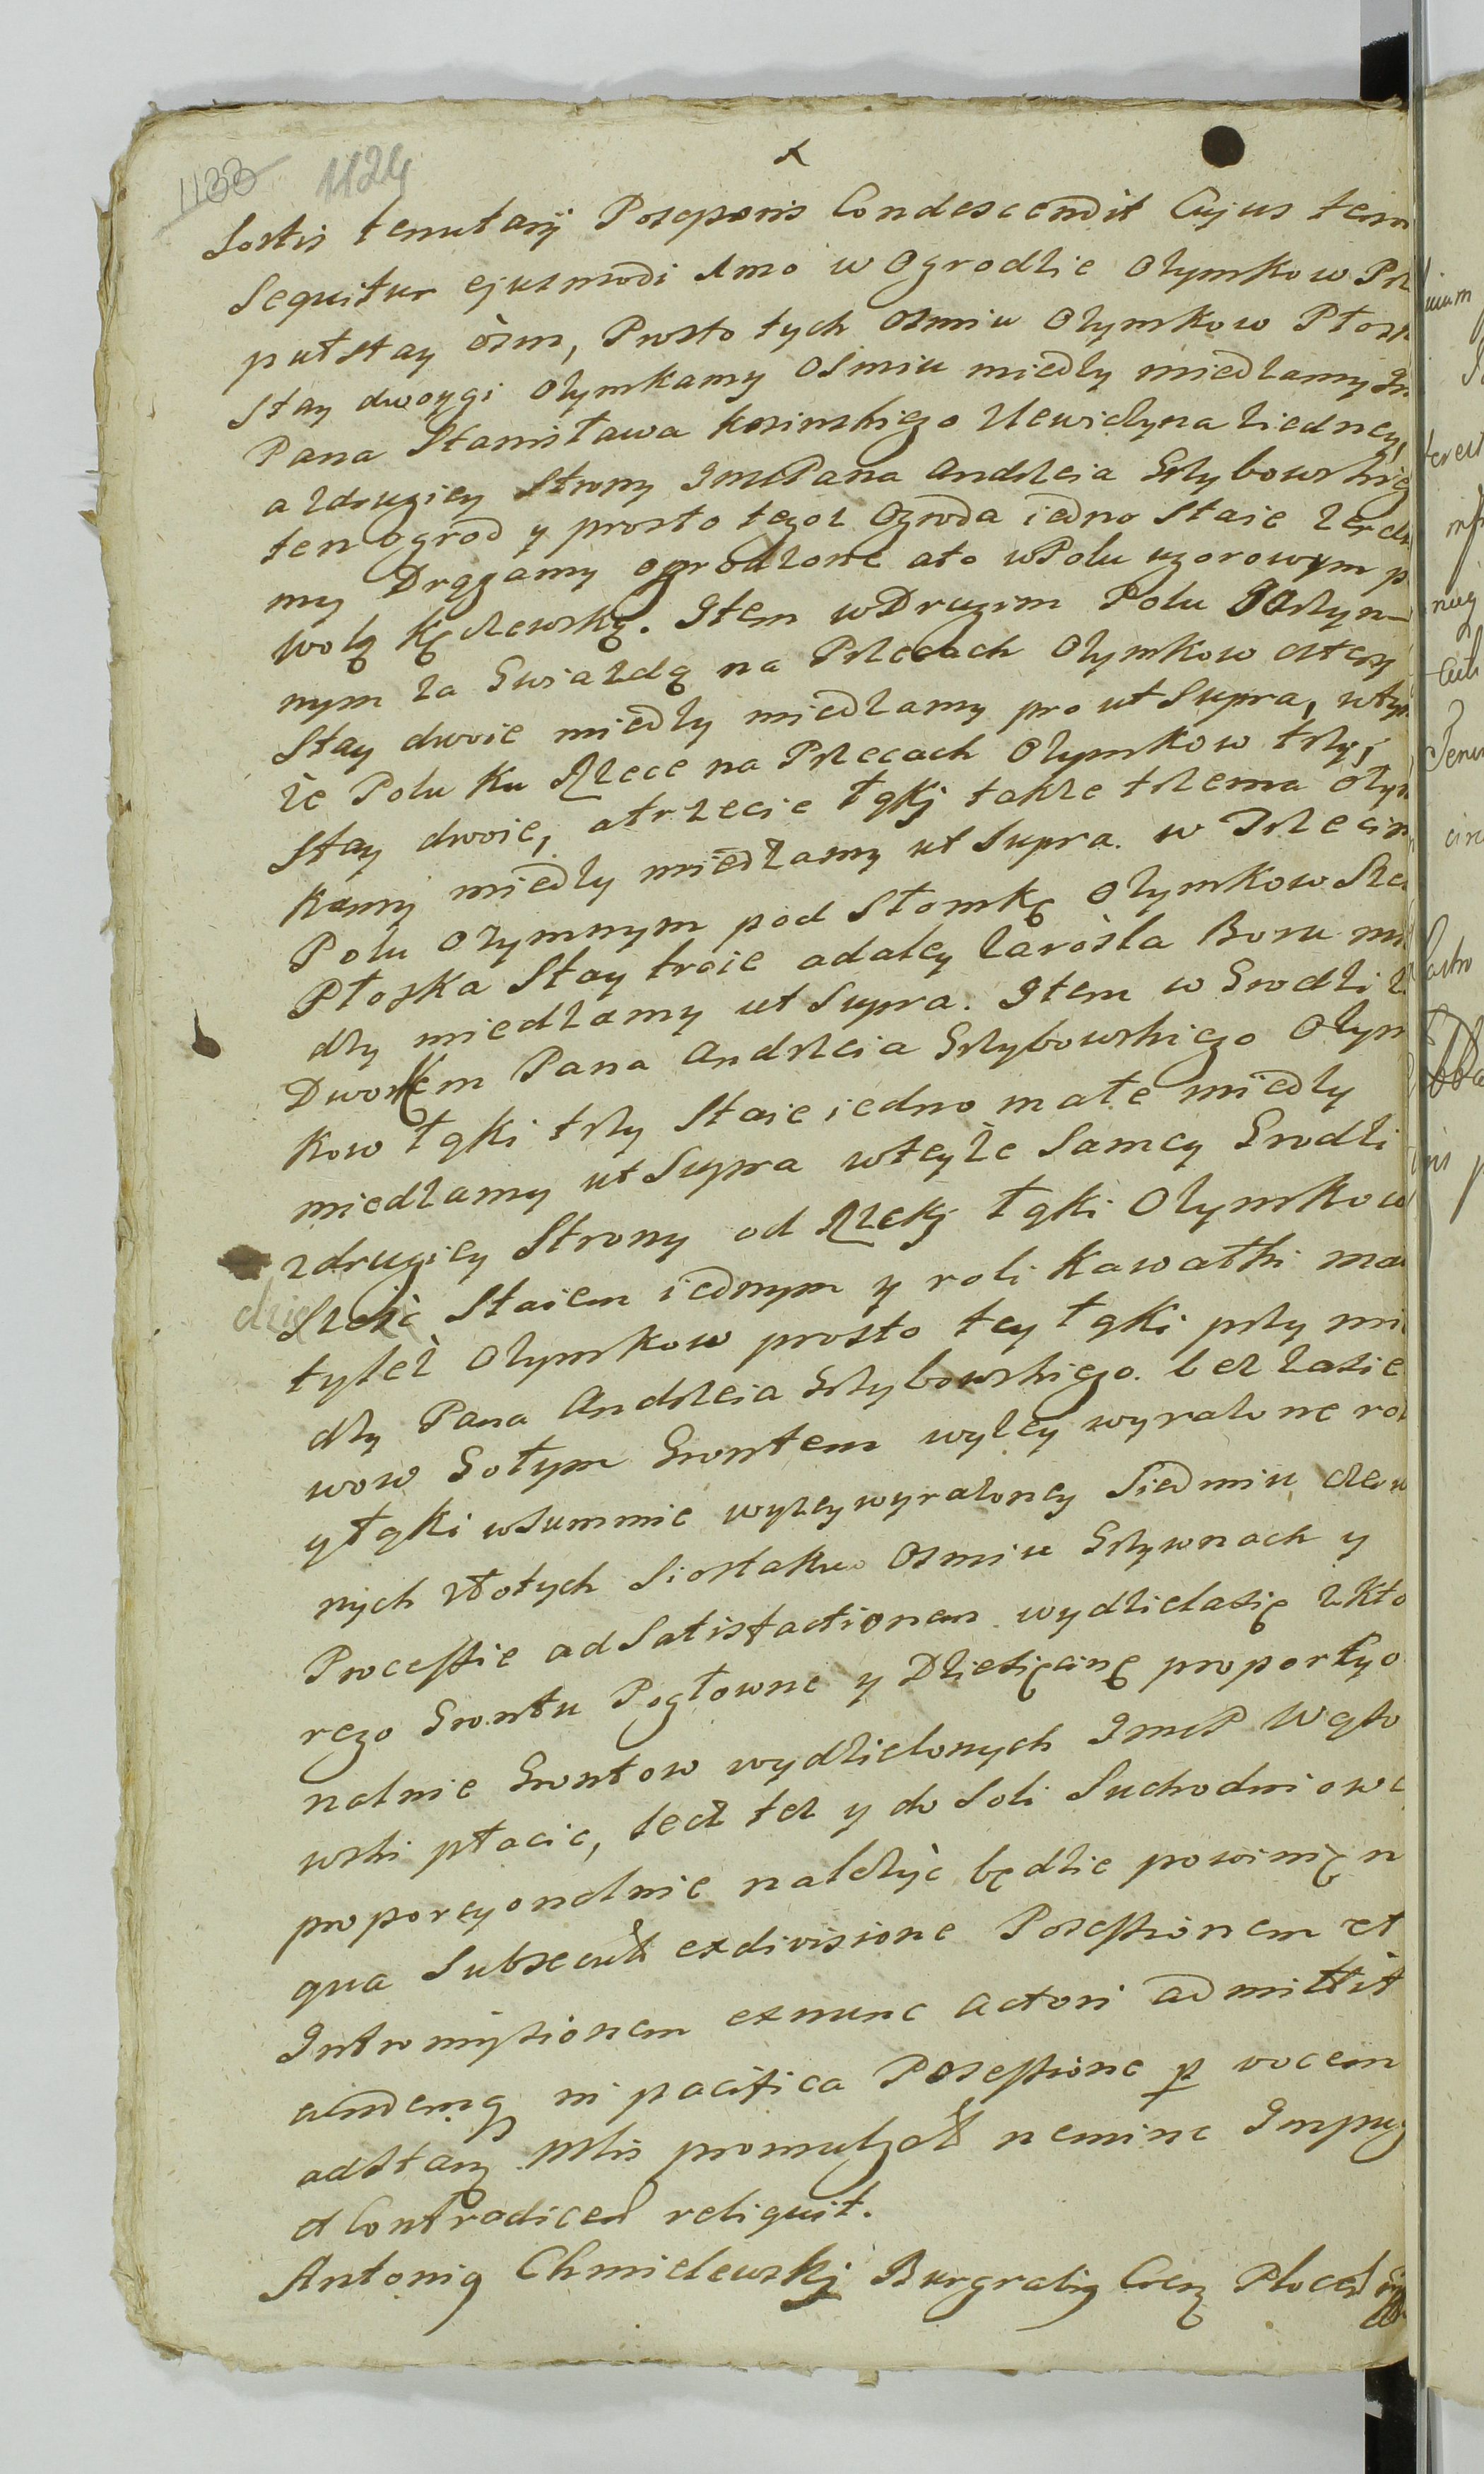 1133 1124
Sortis tenutarij Possessoris Condescendit Cujus tenor
Sequitur ejusmodi 1mo w Ogrodzie Ozymkow
puł stay ośm, Prosto tych osmiu Ozymkow Płos
Stay dwoygi Ozymkamy Osmiu miedzy miedzamy
Pana Stanisława Kosinskiego Uewielgna ziedney,
a zdrugiey Strony ImcPana Andrzeia Grzybowskieg
ten ogrod y prosto tegoz Ogroda iedno Staie
my Drągamy ogrodzone ato w Polu ugorowym
wolą Kęczewską. Item w Drugim Polu Jarzyn-
nym za Gwiazdą na Przecach Ozymkow cztery
Stay dwoie miedzy miedzamy pro ut Supra, wtym
że Polu Ku Rzece na Przecach Ozymkow trzy,
Stay dwoie, a trzecie Łąkj także trzema Ozym
kamy miedzy miedzamy ut Supra. w Trzecim
Polu Ozymnym pod Słomkę Ozymkow Sze
Płoska Stay troie a daley Zarośla Boru mi
dzy miedzamy ut Supra. Item w Grodzi
Dworkem Pana Andrzeia Grzybowskiego Ozym
kow łąki trzy Staie iedno małe miedzy
miedzamy ut Supra w teyże Samey Grodzi
z drugiey Strony od Rzekj Łąki Ozymkow
Sześć Staiem iednym y roli Kawałki ma
tyleż Ozymkow prosto tey Łąki przy mi
dzy Pana Andrzeia Grzybowskiego. bez Zasie
wow Gołym Gruntem wyzey wyrażone rol
y Łąki w Summie wyzey wyrażoney Siedmiu czerw
nych złotych Siostaku Osmiu Grzywnach y
Processie ad Satisfactionem wydzielasię z Kto
rego Gruntu Pogłowne y Dziesięcinę proporcyo
nalnie Gruntow wydzielonych ImcP Wąso
wski płacic, tedz tez y do Soli Suchodniowe
proporcyonalnie należyć będzie powinięn
qua Subsecut ex divisione Possessionem et
Intromissionem ex nunc actori admittit
eundemq in pacifica Possessione p vocem
adstan Mlis promulgat nemine Impug
et Contradicen reliquit.
Antonig Chmielewskj Burgrabig Plocen